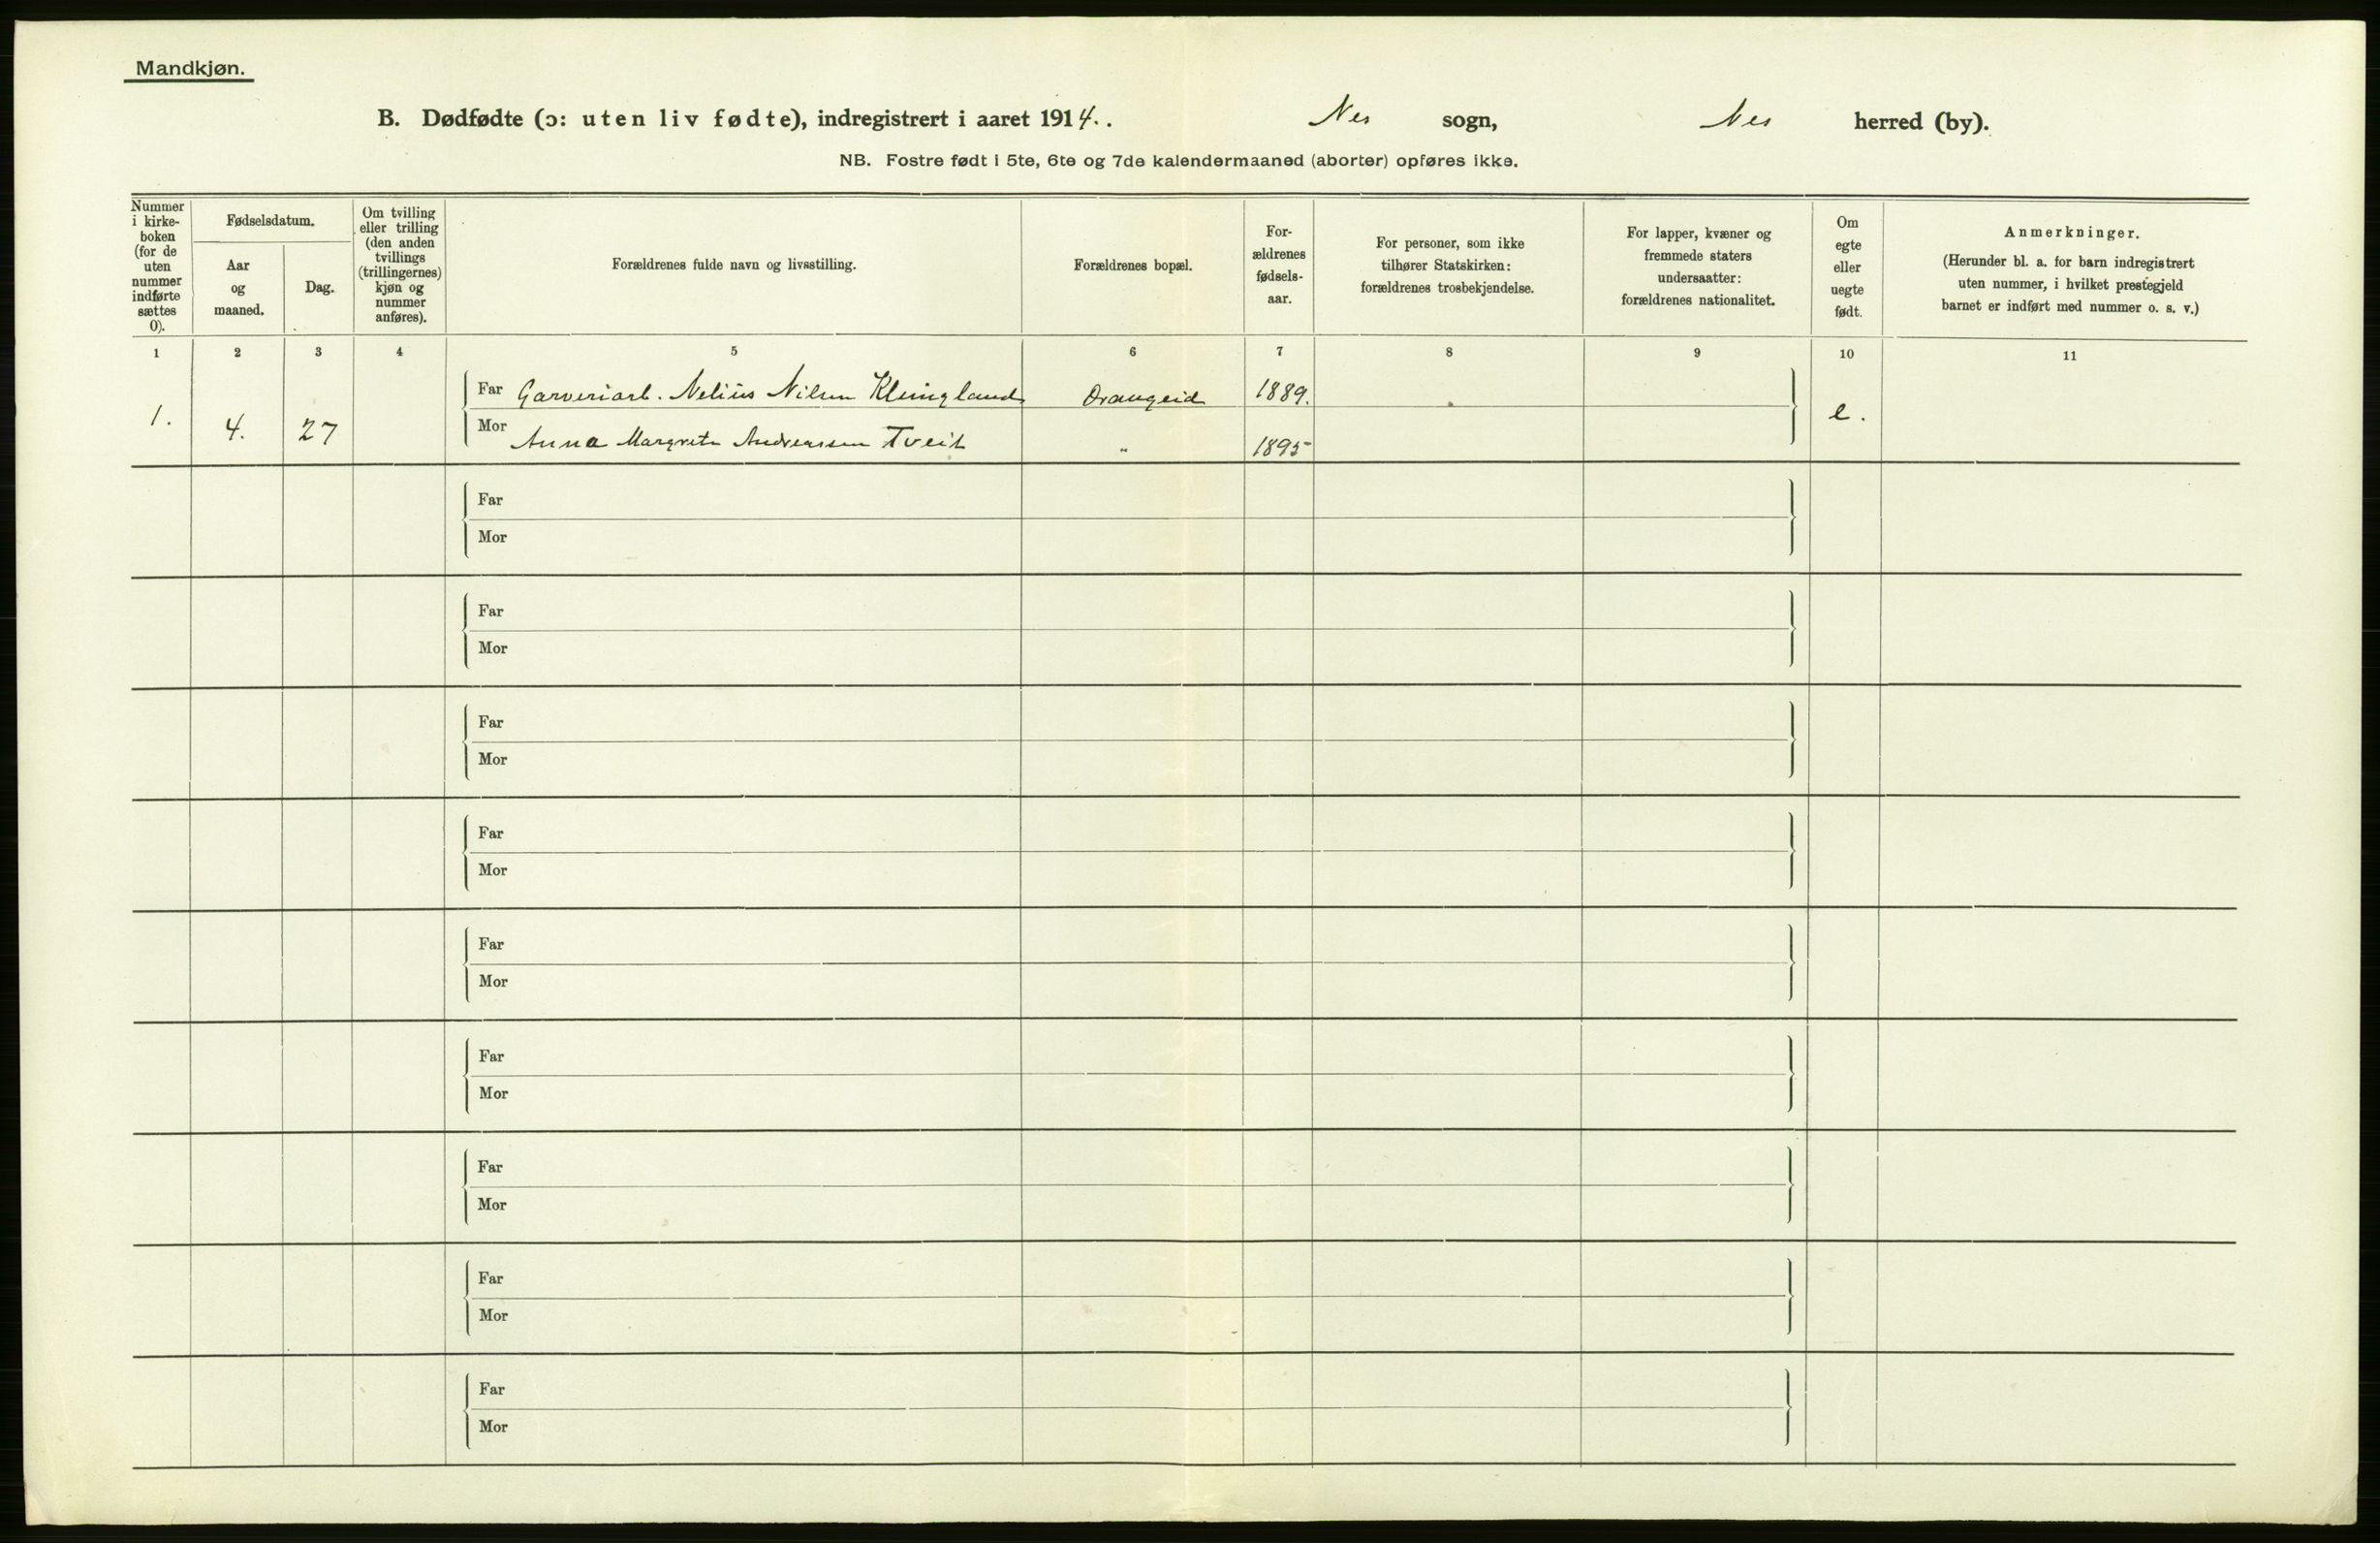 Mandkjøn.
B. Dødfødte (ɔ: uten liv fødte), indregistrert i aaret 1914. . Nes sogn, Nes herred (by).
NB. Fostre født i 5te, 6te og 7de kalendermaaned (aborter) opføres ikke.
Nummer
i kirke-
boken
(for de
uten
nummer
indførte
sættes
0).
Fødselsdatum.
Aar
og
maaned.
Dag.
Om tvilling
eller trilling
(den anden
tvillings
(trillingernes)
kjøn og
nummer
anføres).
Forældrenes fulde navn og livsstilling.
Forældrenes bopæl.
For-
ældrenes
fødsels-
aar.
For personer, som ikke
tilhører Statskirken:
forældrenes trosbekjendelse.
For lapper, kvæner og
fremmede staters
undersaatter:
forældrenes nationalitet.
Om
egte
eller
uegte
født.
Anmerkninger.
(Herunder bl. a. for barn indregistrert
uten nummer, i hvilket prestegjeld
barnet er indført med nummer o. s. v.)
1 2 3 4 5 6 7 8 9 10 11
Far Garveriarb. Nelius Nilsen Klungland Drangeid 1889.
1. 4. 27 e.
Mor Anna Margrete Andreassen Tveit " 1895
Far
Mor
Far
Mor
Far
Mor
Far
Mor
Far
Mor
Far
Mor
Far
Mor
Far
Mor
Far
Mor